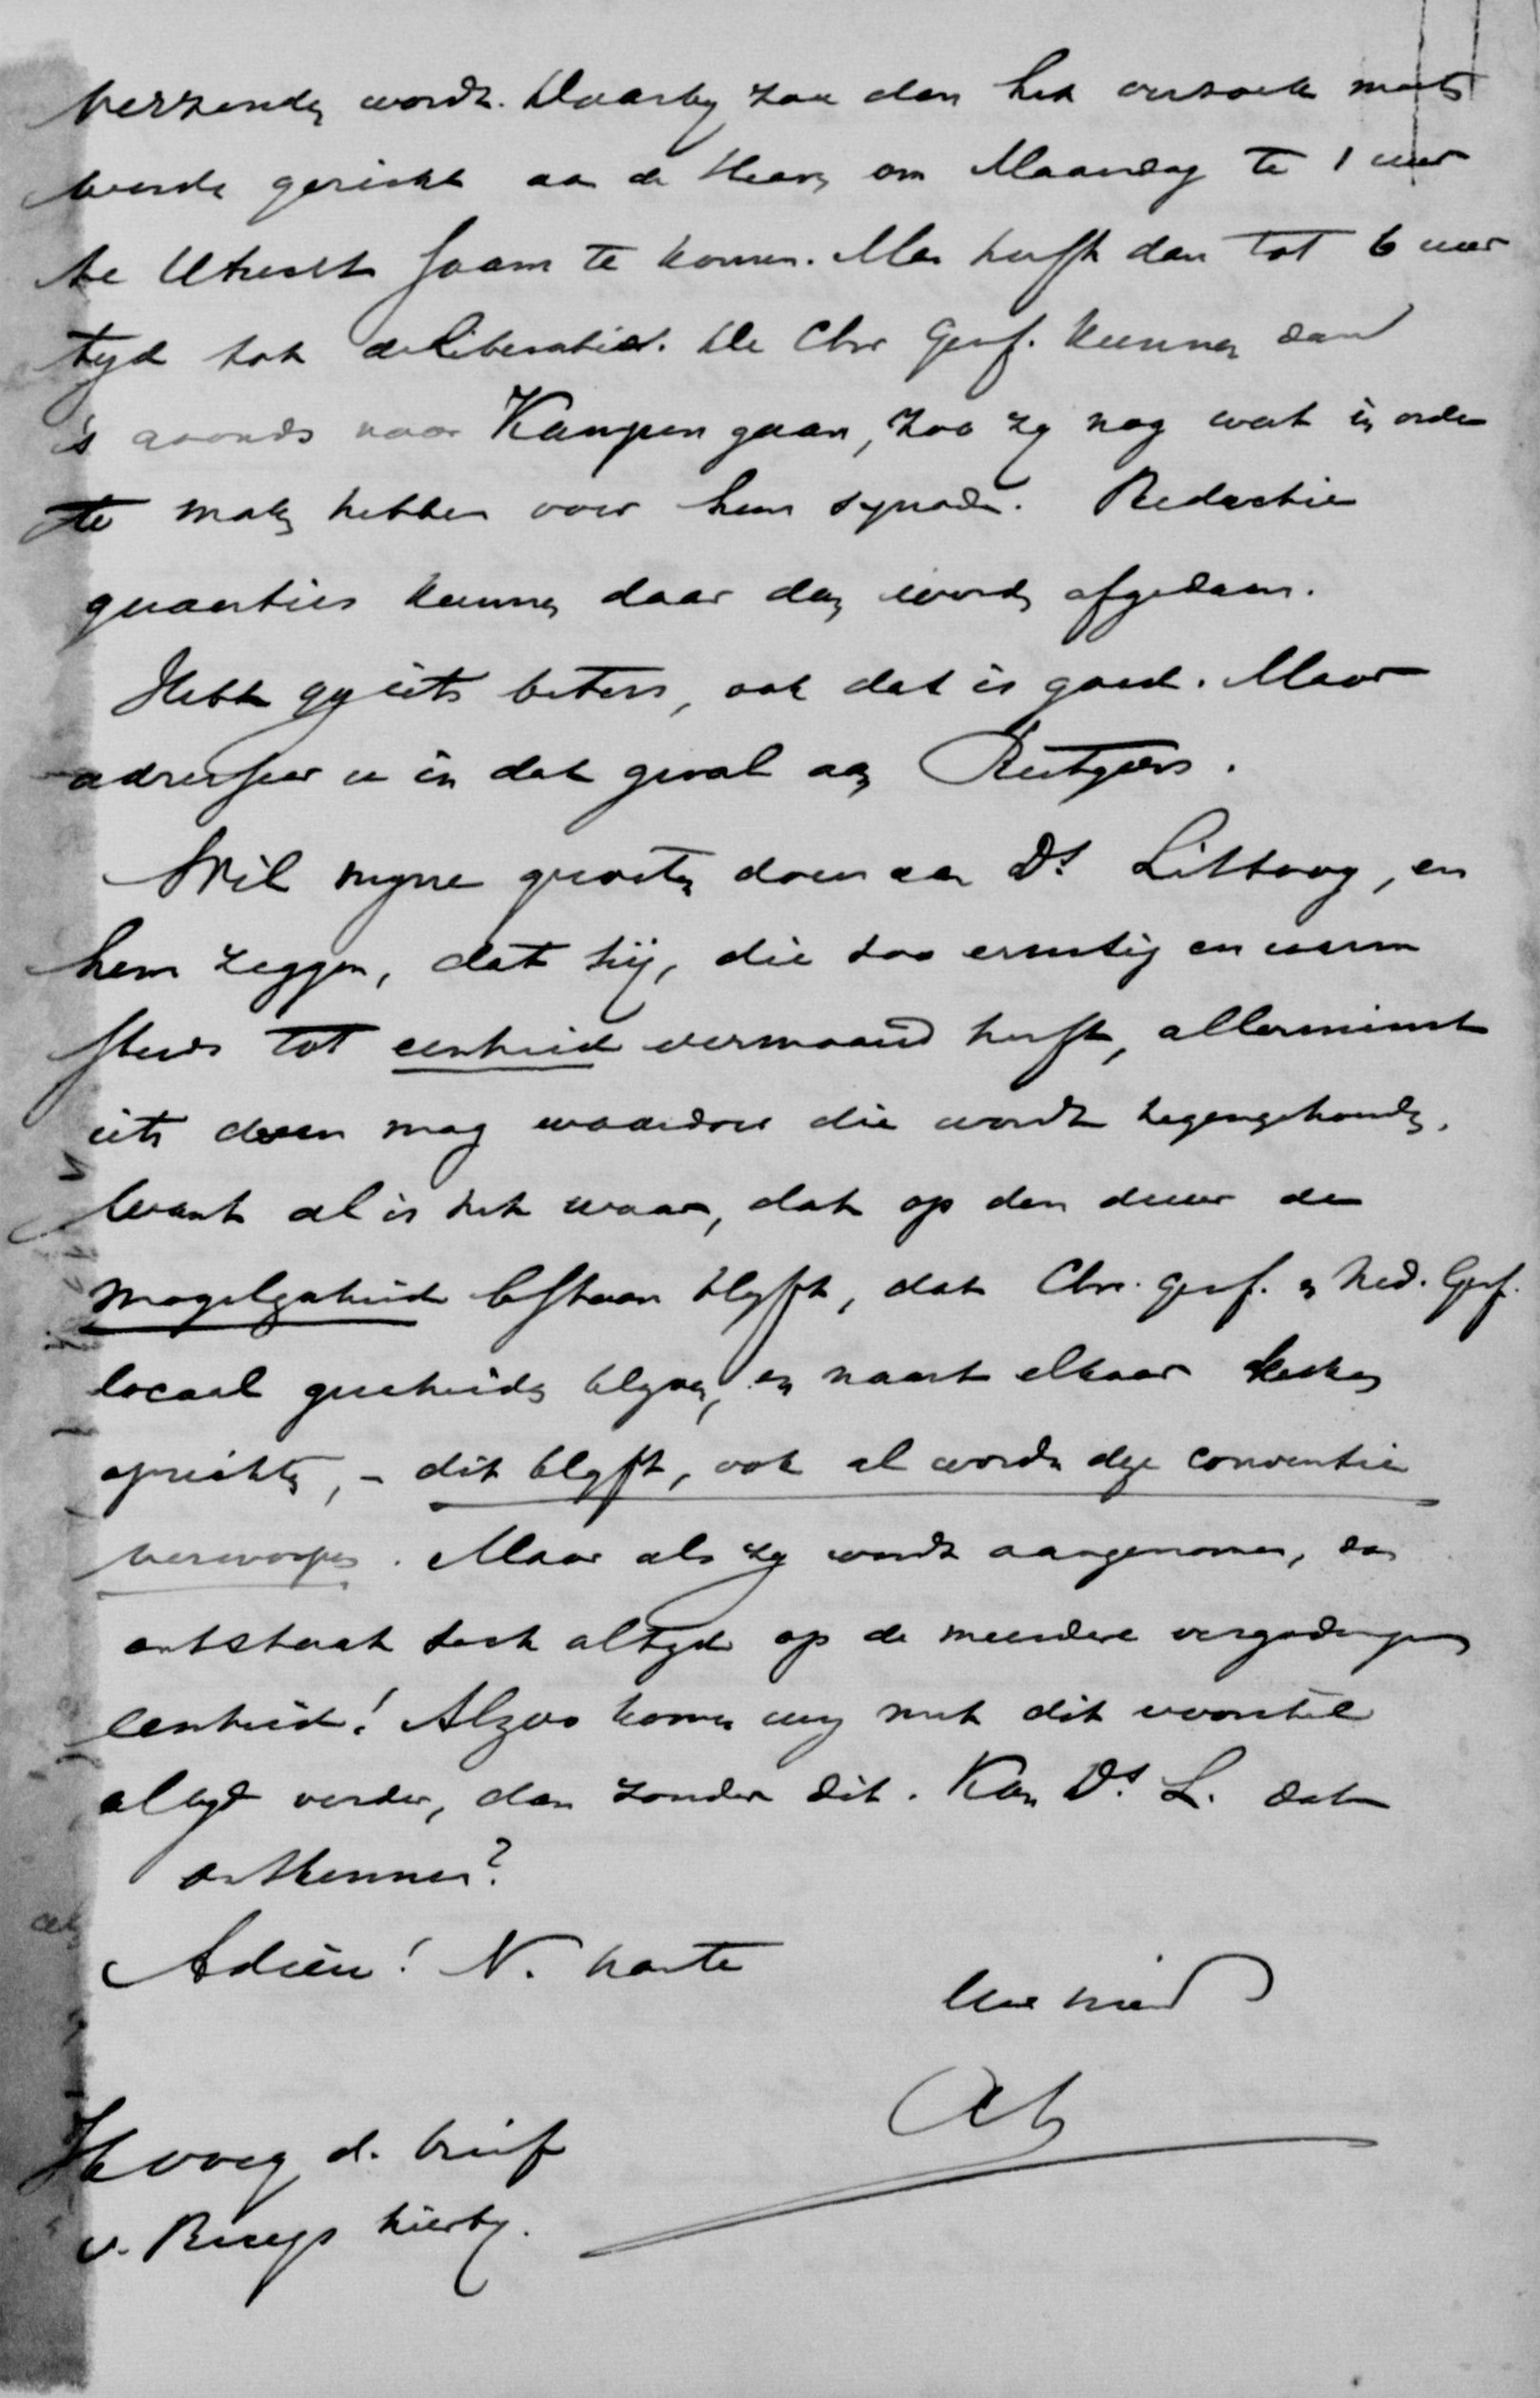 verzonden wordt. Daarbij zou dan het verzoek moeten
worden gericht aan de Heeren om Maandag te 1 uur
te Utrecht saam te komen. Men heeft dan tot 6 uur
tyd tot deliberatie. De Chr Geref. kunnen dan
's avonds naar Kampen gaan, zoo zy nog wat in orde
te maken hebben voor hun synode. Redactie
quaesties kunnen daar dan worden afgedaan.
Hebt gy iets beters, ook dat is goed. Maar
adresseer u in dat geval aan Rutgers.
Wil myne groeten doen aan Ds. Littooy, en
hem zeggen, dat hij, die zoo ernstig en warm
steeds tot eenheid vermaand heeft, allerminst
iets doen mag waardoor die wordt tegengehouden.
Want al is het waar, dat op den duur de
mogelykheid bestaan blyft, dat Chr. Geref. en Ned. Geref.
locaal gescheiden blyven, en naast elkaar kerken
oprichten, - dit blyft, ook al wordt deze conventie
verworpen. Maar als zy wordt aangenomen, dan
ontstaat toch altyd op de meerdere vergaderingen
eenheid! Alzoo komen wy met dit voorstel
altyd verder, dan zonder dit. Kan Ds. L. dat
ontkennen?
Adieu! N. harte
Uw vriend
Ik voeg d. brief
v. hierby.